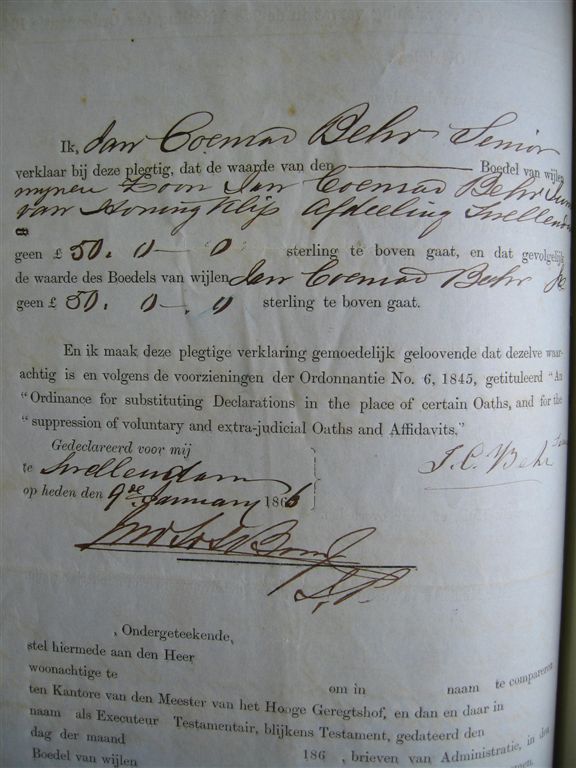 Ik, Jan Coenrad Behr Senior
verklaar bij deze plegtig, dat de waarde van den Boedel van wijlen
mynen Zoon Jan Coenrad Behr Jun
van Honing Klip Afdeeling Swellendam
geen £ 50. 0 - 0 sterling te boven gaat, en dat gevolgelijk
de waarde des Boedels van wijlen Jan Coenrad Behr Jr
geen £ 50. 0 - 0 sterling te boven gaat.
En ik maak deze plegtige verklaring gemoedelijk geloovende dat dezelve waar-
achtig is en volgens de voorzieningen der Ordonnantie No. 6, 1845, getituleerd "An
"Ordinance for substituting Declarations in the place of certain Oaths, and for the
"suppression of voluntary and extra-judicial Oaths and Affidavits."
Gedeclareerd voor mij
te Swellendam
J. C. Behr Sen
op heden den 9de January 1866
J.P.
, Ondergeteekende,
stel hiermede aan den Heer
woonachtige te om in naam te compareren
ten Kantore van den Meester van het Hooge Geregtshof, en dan en daar in
naam als Executeur Testamentair, blijkens Testament, gedateerd den
dag der maand 186 , brieven van Administratie, in den
Boedel van wijlen